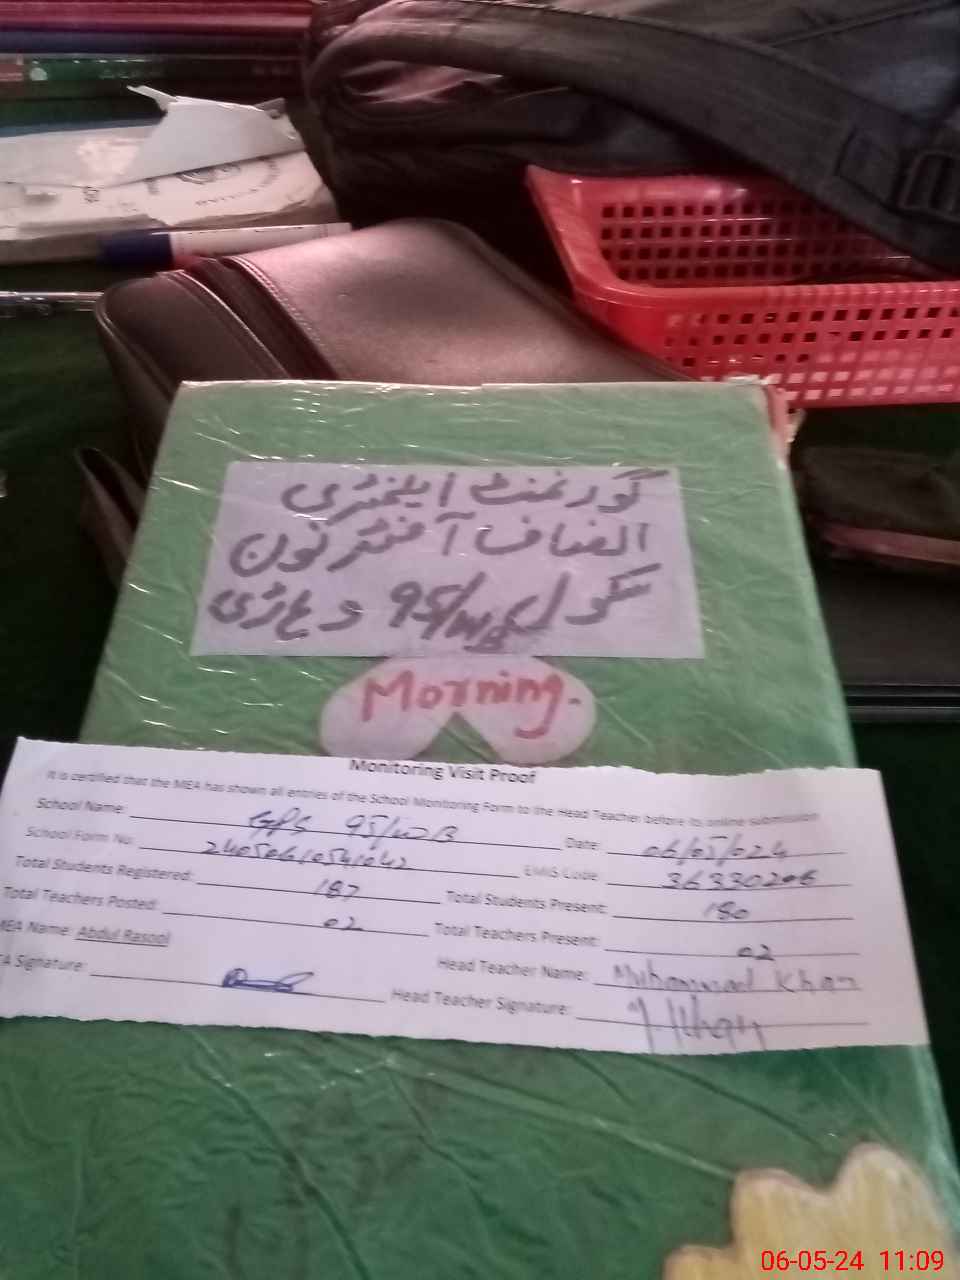 گورنمنٹ ایلمنٹری
انصاف آفٹر نون
سکول 95/WB وہاڑی
Morning.
Monitoring Visit Proof
It is certified that the MEA has shown all entries of the School Monitoring Form to the Head Teacher before its online submission
School Name: GPS 95/WB Date: 06/05/024
School Form No: 24050610541042 EMIS Code: 36330206
Total Students Registered: 187 Total Students Present: 180
Total Teachers Posted: 02 Total Teachers Present: 02
MEA Name: Abdul Rasool Head Teacher Name: Muhammad Khan
EA Signature: Head Teacher Signature: M Khan
06-05-24 11:09